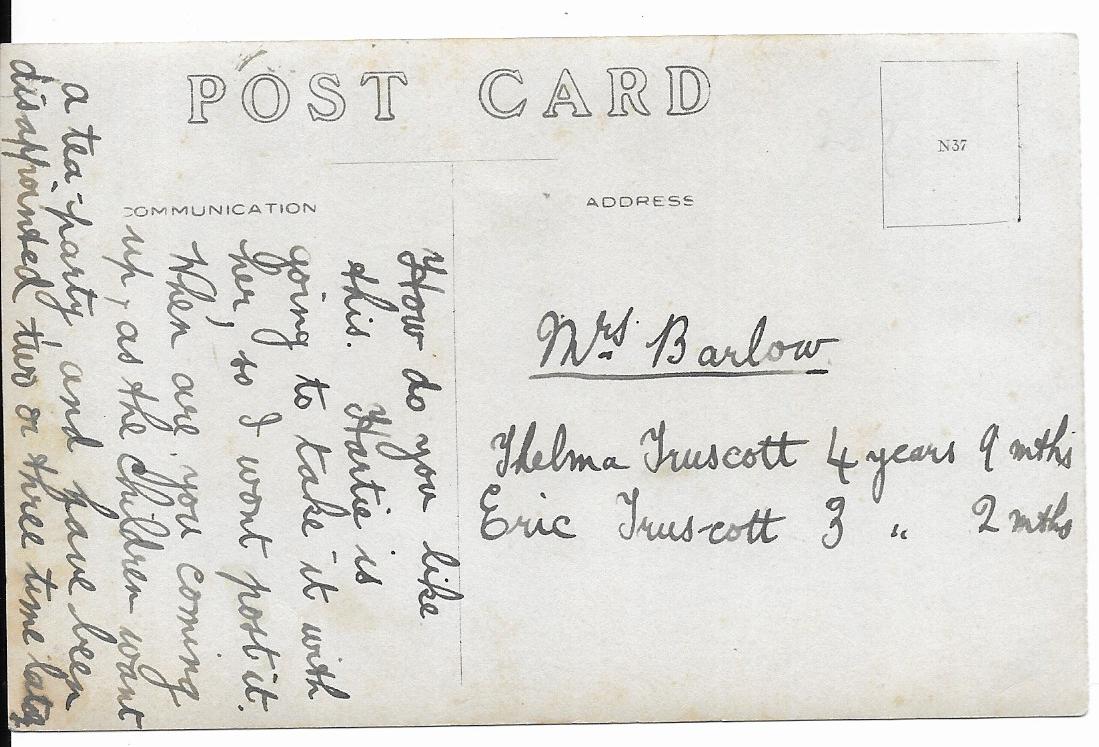 POST CARD
N37
COMMUNICATION
ADDRESS
How do you like
this. Hartie is
going to take it with
her, so I wont post it.
When are you coming
up, as the children want
a tea-party, and have been
disappointed two or three time lately
Mrs. Barlow
Thelma Truscott 4 years 9 mths
Eric Truscott 3 " 2 mths